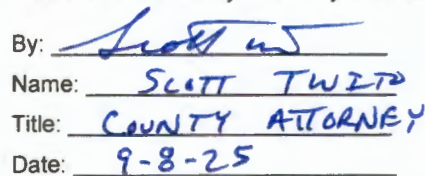 By: Scott
Name: SCOTT TWITO
Title: COUNTY ATTORNEY
Date: 9-8-25